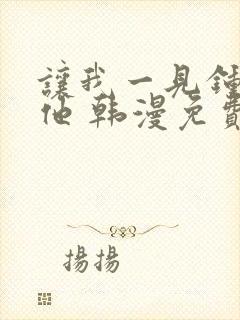 讓我一見鍾
他 韓漫免費
揚揚